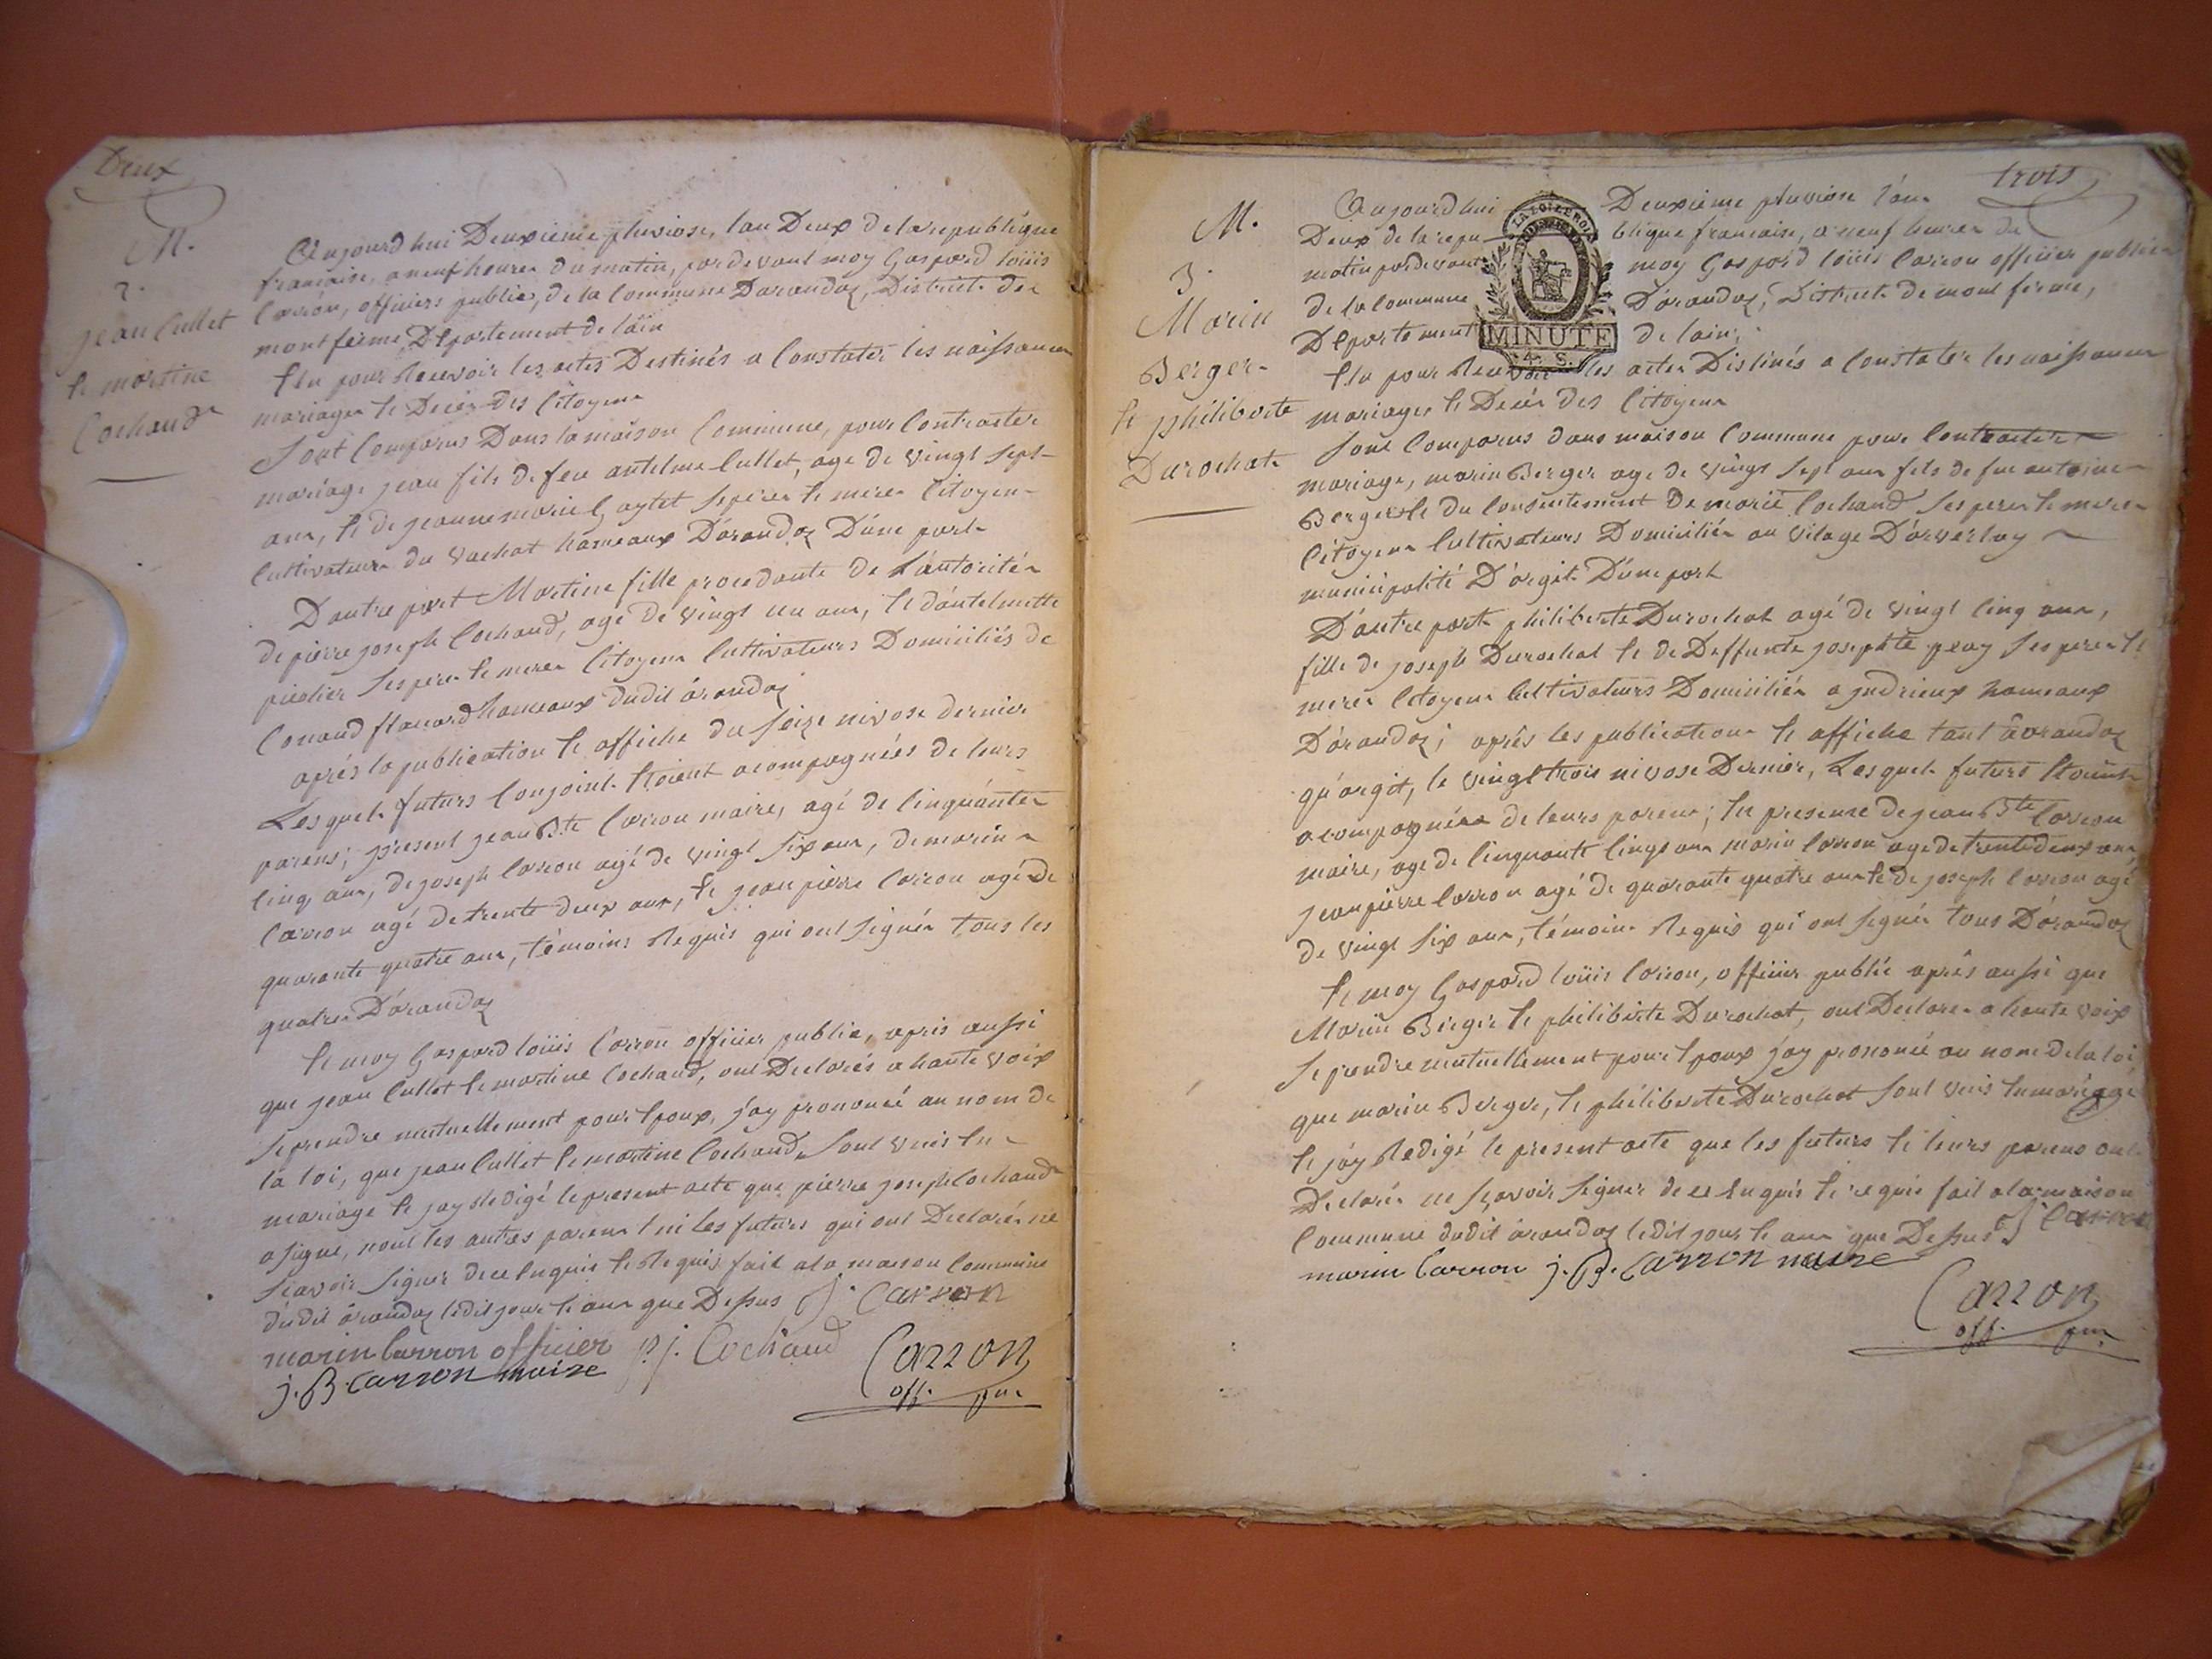 Deux
M.
2.
jean Cullet
et martine
Cochand
Aujourd hui Deuxieme pluviose, lan Deux de la republique
francaise, a neuf heures du matin, pardevant moy Gaspard loüis
Carron, officiers public, de la Commune Darandas, District de
montferme Département de lain
Elu pour Recevoir les actes Destinés a Constater les naissances
mariages et Decès des Citoyens
Sont Comparus Dans la maison Commune, pour Contracter
mariage jean fils de feu antelme Cullet, age de vingt sept
ans, et de jeanne marie Gaytet ses peres et meres Citoyens
Cultivateurs du vachat hameaux D'arandas D'une part
D autre part Martine fille procedante de L'autorité
de pierre joseph Cochand, agé de vingt un ans, et d'antelmette
ses peres et meres Citoyens Cultivateurs Domiciliés de
Conand hameaux dudit arandas
aprés la publication et affiche du seize nivose dernier
Lesquels futurs Conjoints Etoient acompagnées de leurs
parens; present jean Bte Carron maire, agé de Cinquante
Cinq ans, de joseph Carron agé de vingt six ans, de marin
Carron agé de trente deux ans, et jean pierre Carron agé de
quarante quatre ans, témoins Requis qui ont signés tous les
quatres D'arandas
Et moy Gaspard loüis Carron officier public, apris aussi
que jean Cullet et martine Cochand, ont Declarés a haute voix
se prendre mutuellement pour Epoux, j'ay prononcé au nom de
la loi, que jean Cullet et martine Cochand, sont unis En
mariage et j'ay Redigé le present acte que pierre joseph Cochand
a signe, nont les autres parens ni les futurs qui ont Declarés ne
sçavoir signer de ce Enquis et Requis fait a la maison Commune
dudit arandas ledit jour et ans que Dessus J. Carron
marin Carron officier p. j. Cochand
j. B. Carron maire
Carron
off. pu.
trois
M.
3.
Marin
Berger
et philiberte
Durochat
Aujourd hui Deuxieme pluviose l'an
Deux de la repu blique francaise, a neuf heures de
matin pardevant moy Gaspard loüis Carron officier public
de la Commune D'arandas, District de mont ferme,
Département de lain;
LA LOI LE ROI
MINUTE
4. S.
Elu pour Recevoir les actes Distinés a Constater les naissances
mariages et Decés des Citoyens
Sont Comparus dans maison Commune pour Contracter
mariage, marin Berger age de vingt sept ans fils de feu antoine
Berger et du Consentement De marie Cochand ses peres et meres
Citoyens Cultivateurs Domiciliés au vilage D'arverlay
municipalité D'argit D'une part
D'autre part philiberte Durochat agé de vingt Cinq ans,
fille de joseph Durochat et de Deffunte josephte peay ses peres et
meres Citoyens Cultivateurs Domiciliés a jndrieux hameaux
D'arandas; aprés les publications et affiche tant a arandas
qu'argit, le vingt trois nivose Dernier, Lesquels futurs Etoient
acompagnées de leurs parens; En presence de jean Bte Carron
maire, age de Cinquante Cinqs ans marin Carron age de trente deux ans,
jean pierre Carron agé de quarante quatre ans et de joseph Carron agé
de vingt six ans, témoins Requis qui ont signés tous D'arandas
Et moy Gaspard loüis Carron, officier public aprés aussi que
Marin Berger et philiberte Durochat, ont Declares a haute voix
se prendre mutuellement pour Epoux j'ay prononcé au nom de la loi
que marin Berger, et philiberte Durochat sont unis En mariage
et j'ay Redigé le present acte que les futurs et leurs parens ont
Declarés ne sçavoir signer de ce Enquis et requis fait a la maison
Commune dudit arandas ledit jour et ans que Dessus J Carron
marin Carron j. B. Carron maire
Carron
off. pu.